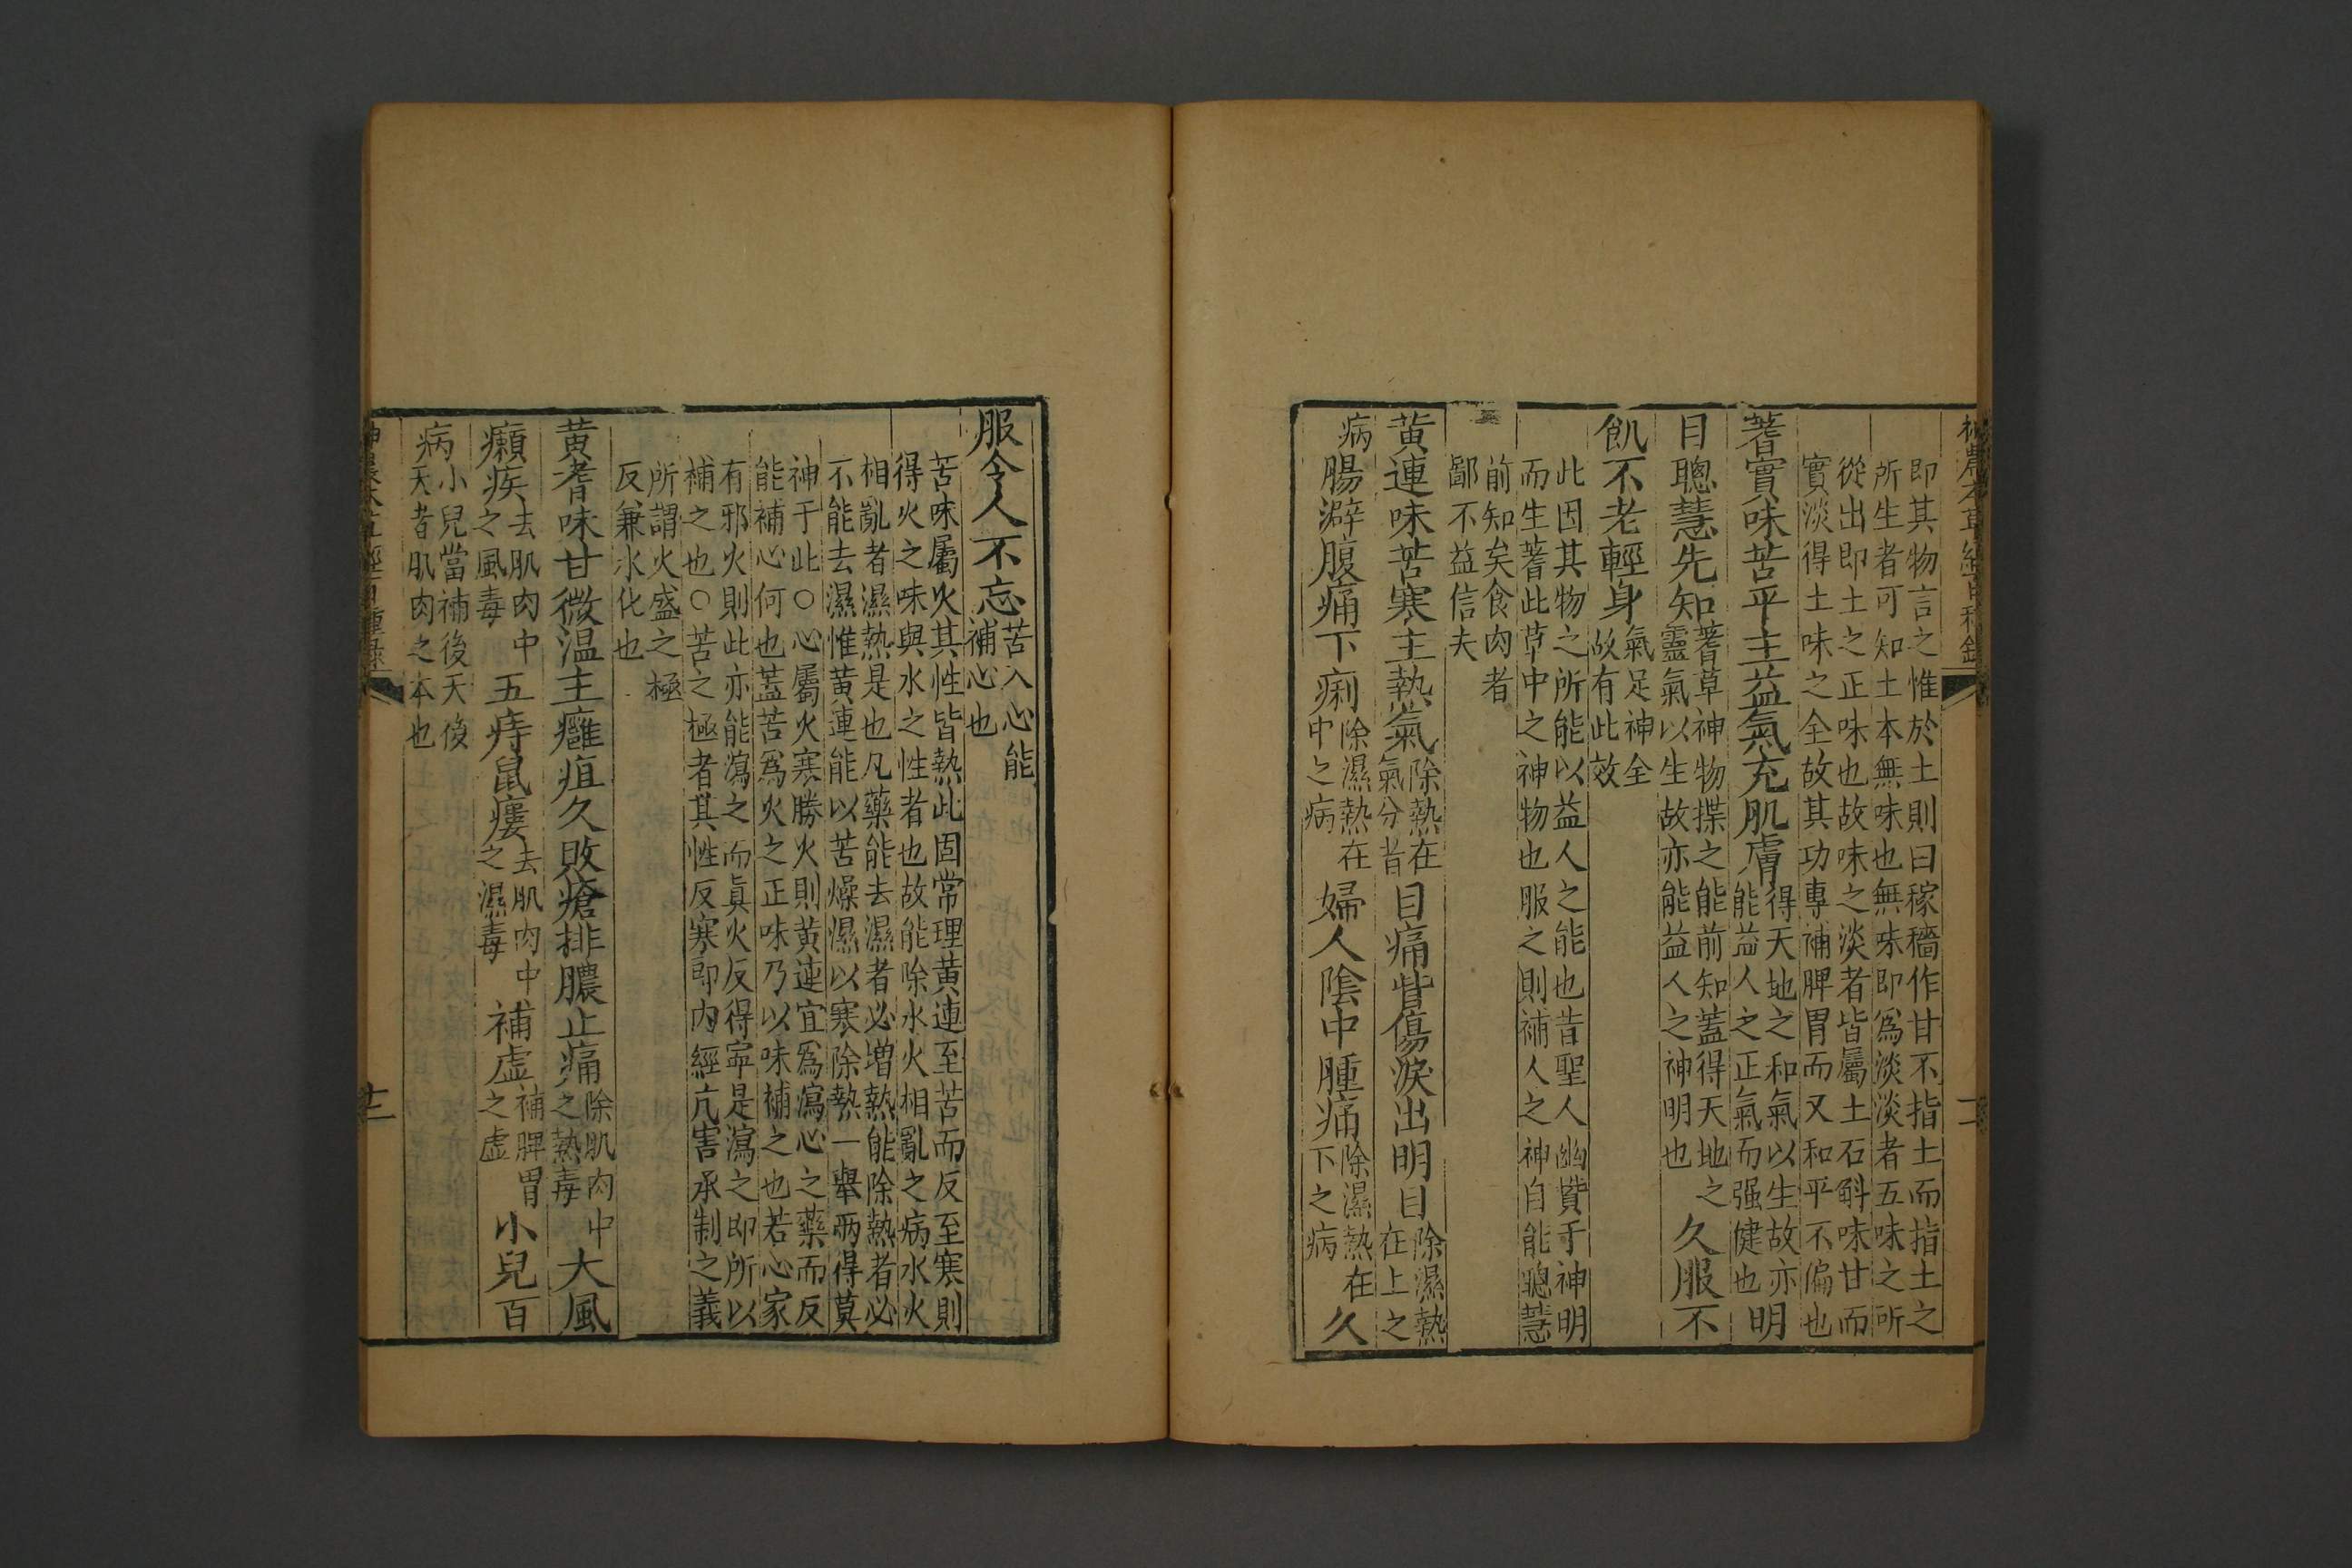 神農本草經百種錄
即其物言之惟於土則曰稼穡作甘不指土而指土之
所生者可知土本無味也無味即爲淡淡者五味之所
從出即土之正味也故味之淡者皆屬土石斛味甘而
實淡得土味之全故其功專補脾胃而又和平不偏也
蓍實味苦平主益氣充肌膚得天地之和氣以生故亦能益人之正氣而强健也明
目聰慧先知蓍草神物揲之能前知蓋得天地之靈氣以生故亦能益人之神明也久服不
飢不老輕身氣足神全故有此效
此因其物之所能以益人之能也昔聖人幽贊于神明
而生蓍此草中之神物也服之則補人之神自能聰慧
前知矣食肉者
鄙不益信夫
黄連味苦寒主熱氣除熱在氣分者目痛眥傷淚出明目除濕熱在上之
病腸澼腹痛下痢除濕熱在中之病婦人陰中腫痛除濕熱在下之病久
服令人不忘苦入心能補心也
苦味屬火其性皆熱此固常理黄連至苦而反至寒則
得火之味與水之性者也故能除水火相亂之病水火
相亂者濕熱是也凡藥能去濕者必增熱能除熱者必
不能去濕惟黄連能以苦燥濕以寒除熱一舉兩得莫
神于此○心屬火寒勝火則黄連宜爲瀉心之藥而反
能補心何也蓋苦爲火之正味乃以味補之也若心家
有邪火則此亦能瀉之而眞火反得寧是瀉之即所以
補之也○苦之極者其性反寒即内經亢害承制之義
所謂火盛之極
反兼水化也
黄耆味甘微温主癰疽久敗瘡排膿止痛除肌肉中之熱毒大風
癩疾去肌肉中之風毒五痔鼠瘻去肌肉中之濕毒補虚補脾胃之虚小兒百
病小兒當補後天後天者肌肉之本也
神農本草經百種錄
十二